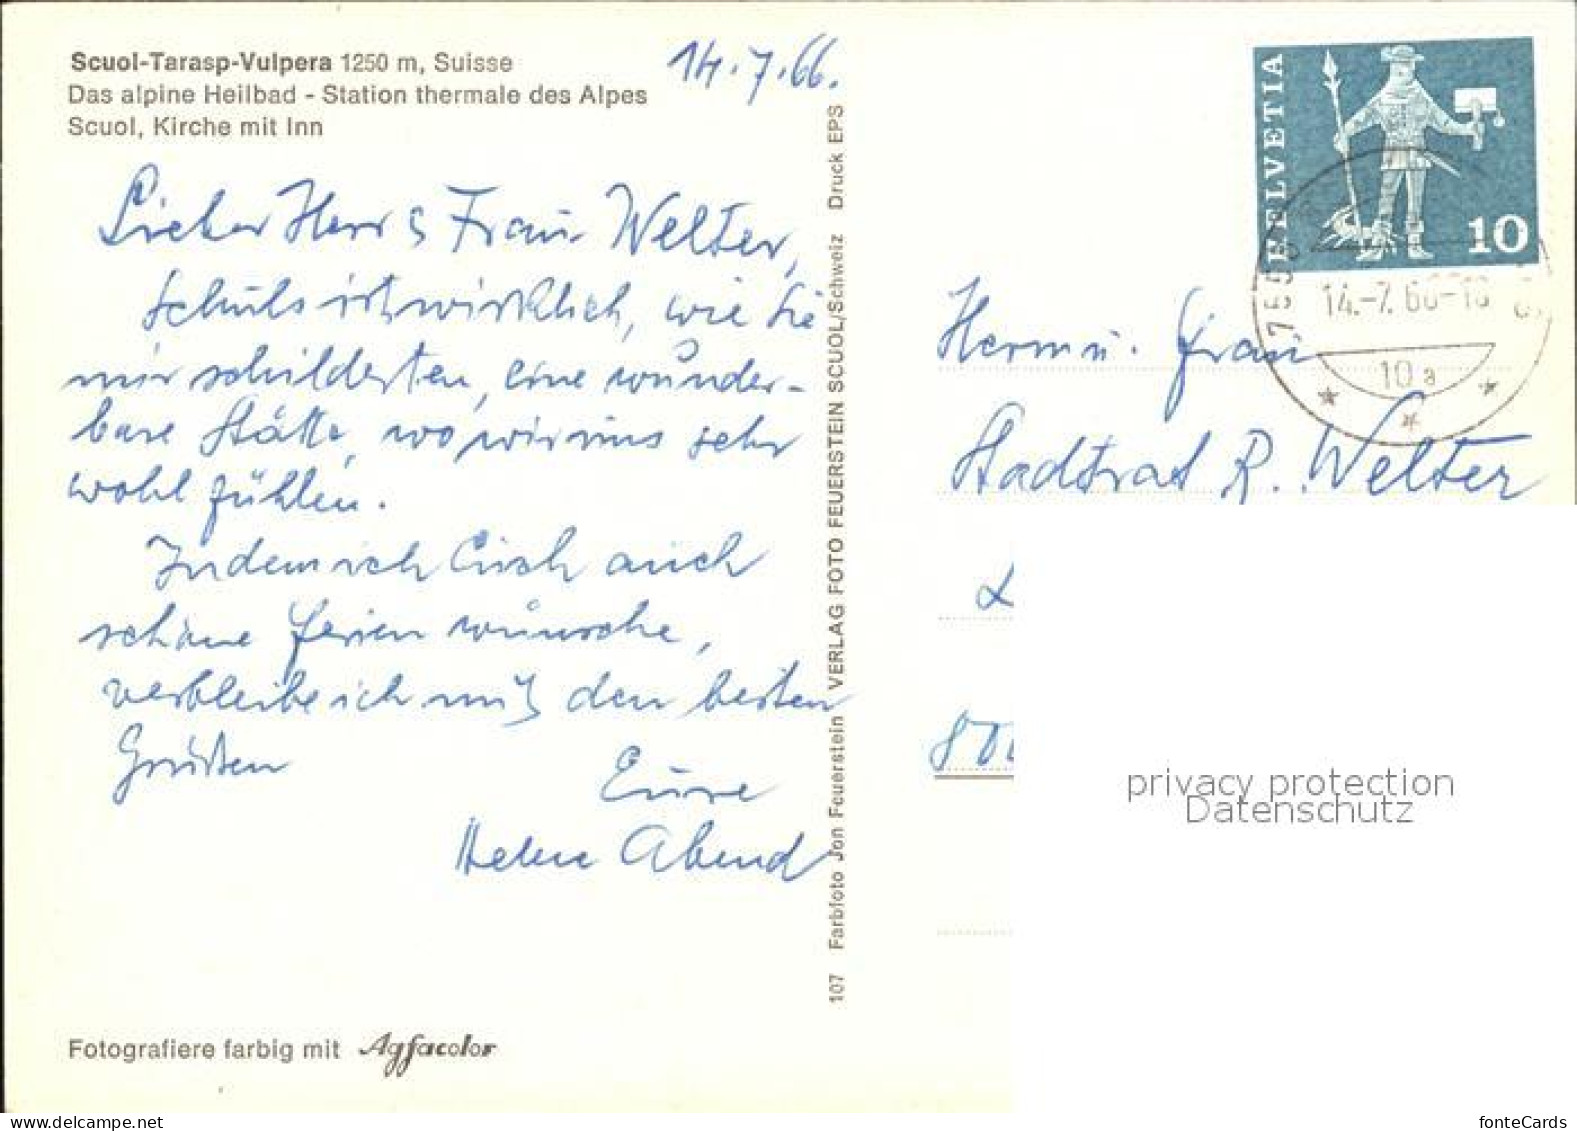 Scuol-Tarasp-Vulpera 1250 m, Suisse
Das alpine Heilbad - Station thermale des Alpes
Scuol, Kirche mit Inn
14.7.66.
Lieber Herr & Frau Welter,
Schuls ist wirklich, wie Sie
mir schilderten, eine wunder-
bare Stätte, wo wir uns sehr
wohl fühlen.
Indem ich Euch auch
schöne Ferien wünsche,
verbleibe ich mit den besten
Grüssen
Eure
Helen Abend
Fotografiere farbig mit Agfacolor
107 Farbfoto Jon Feuerstein VERLAG FOTO FEUERSTEIN SCUOL/Schweiz Druck EPS
HELVETIA
10
7550
14.-7.66-18
10a
Herrn u. Frau
Stadtrat R. Welter
privacy protection
Datenschutz
www.delcampe.net
fonteCards